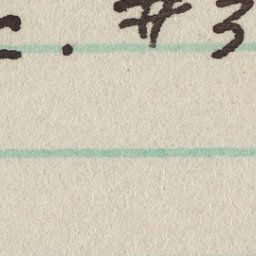 . #3